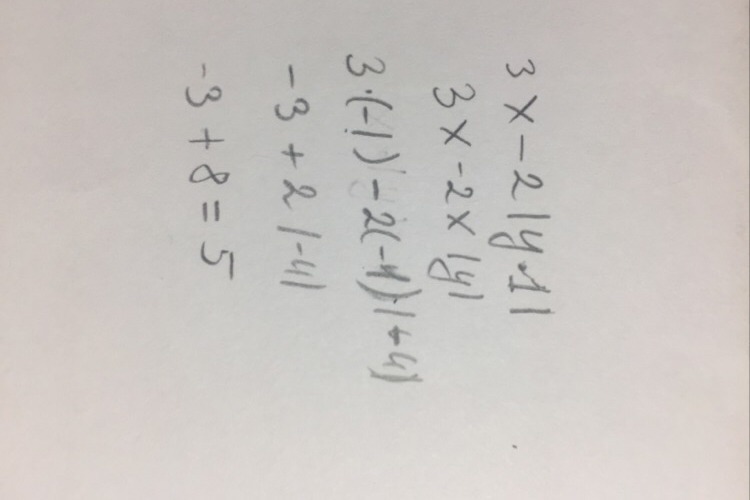 3x-2|y·1|
3x-2x|y|
3·(-1)-2(-1)·|+4|
-3+2|-4|
-3+8=5